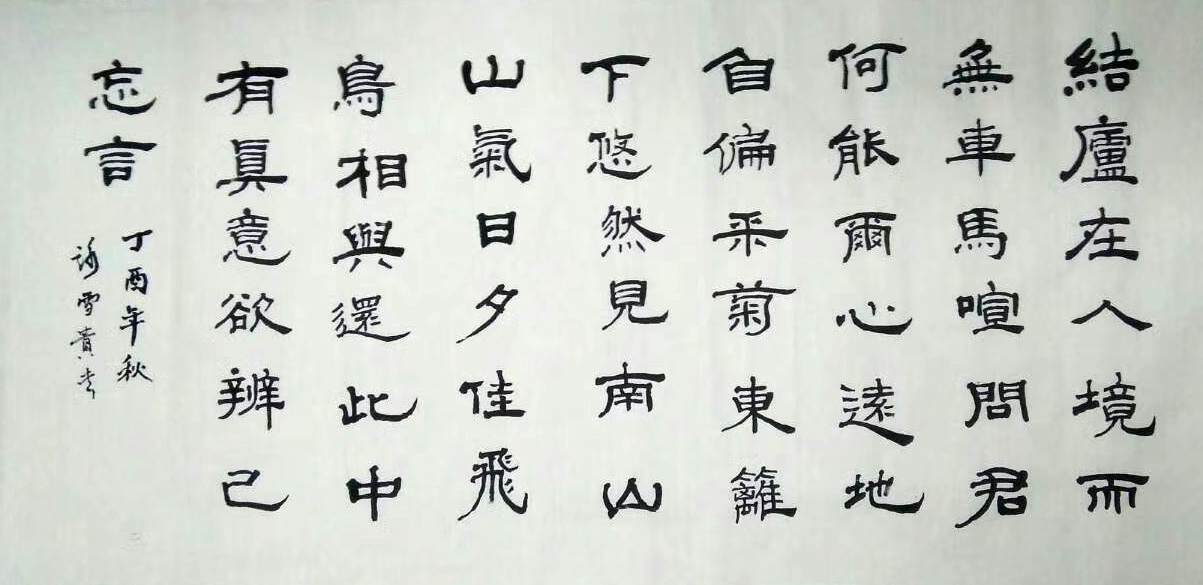 結廬在人境而
無車馬喧問君
何能爾心遠地
自偏采菊東籬
下悠然見南山
山氣日夕佳飛
鳥相與還此中
有真意欲辨己
忘言
丁酉年秋
雪貴